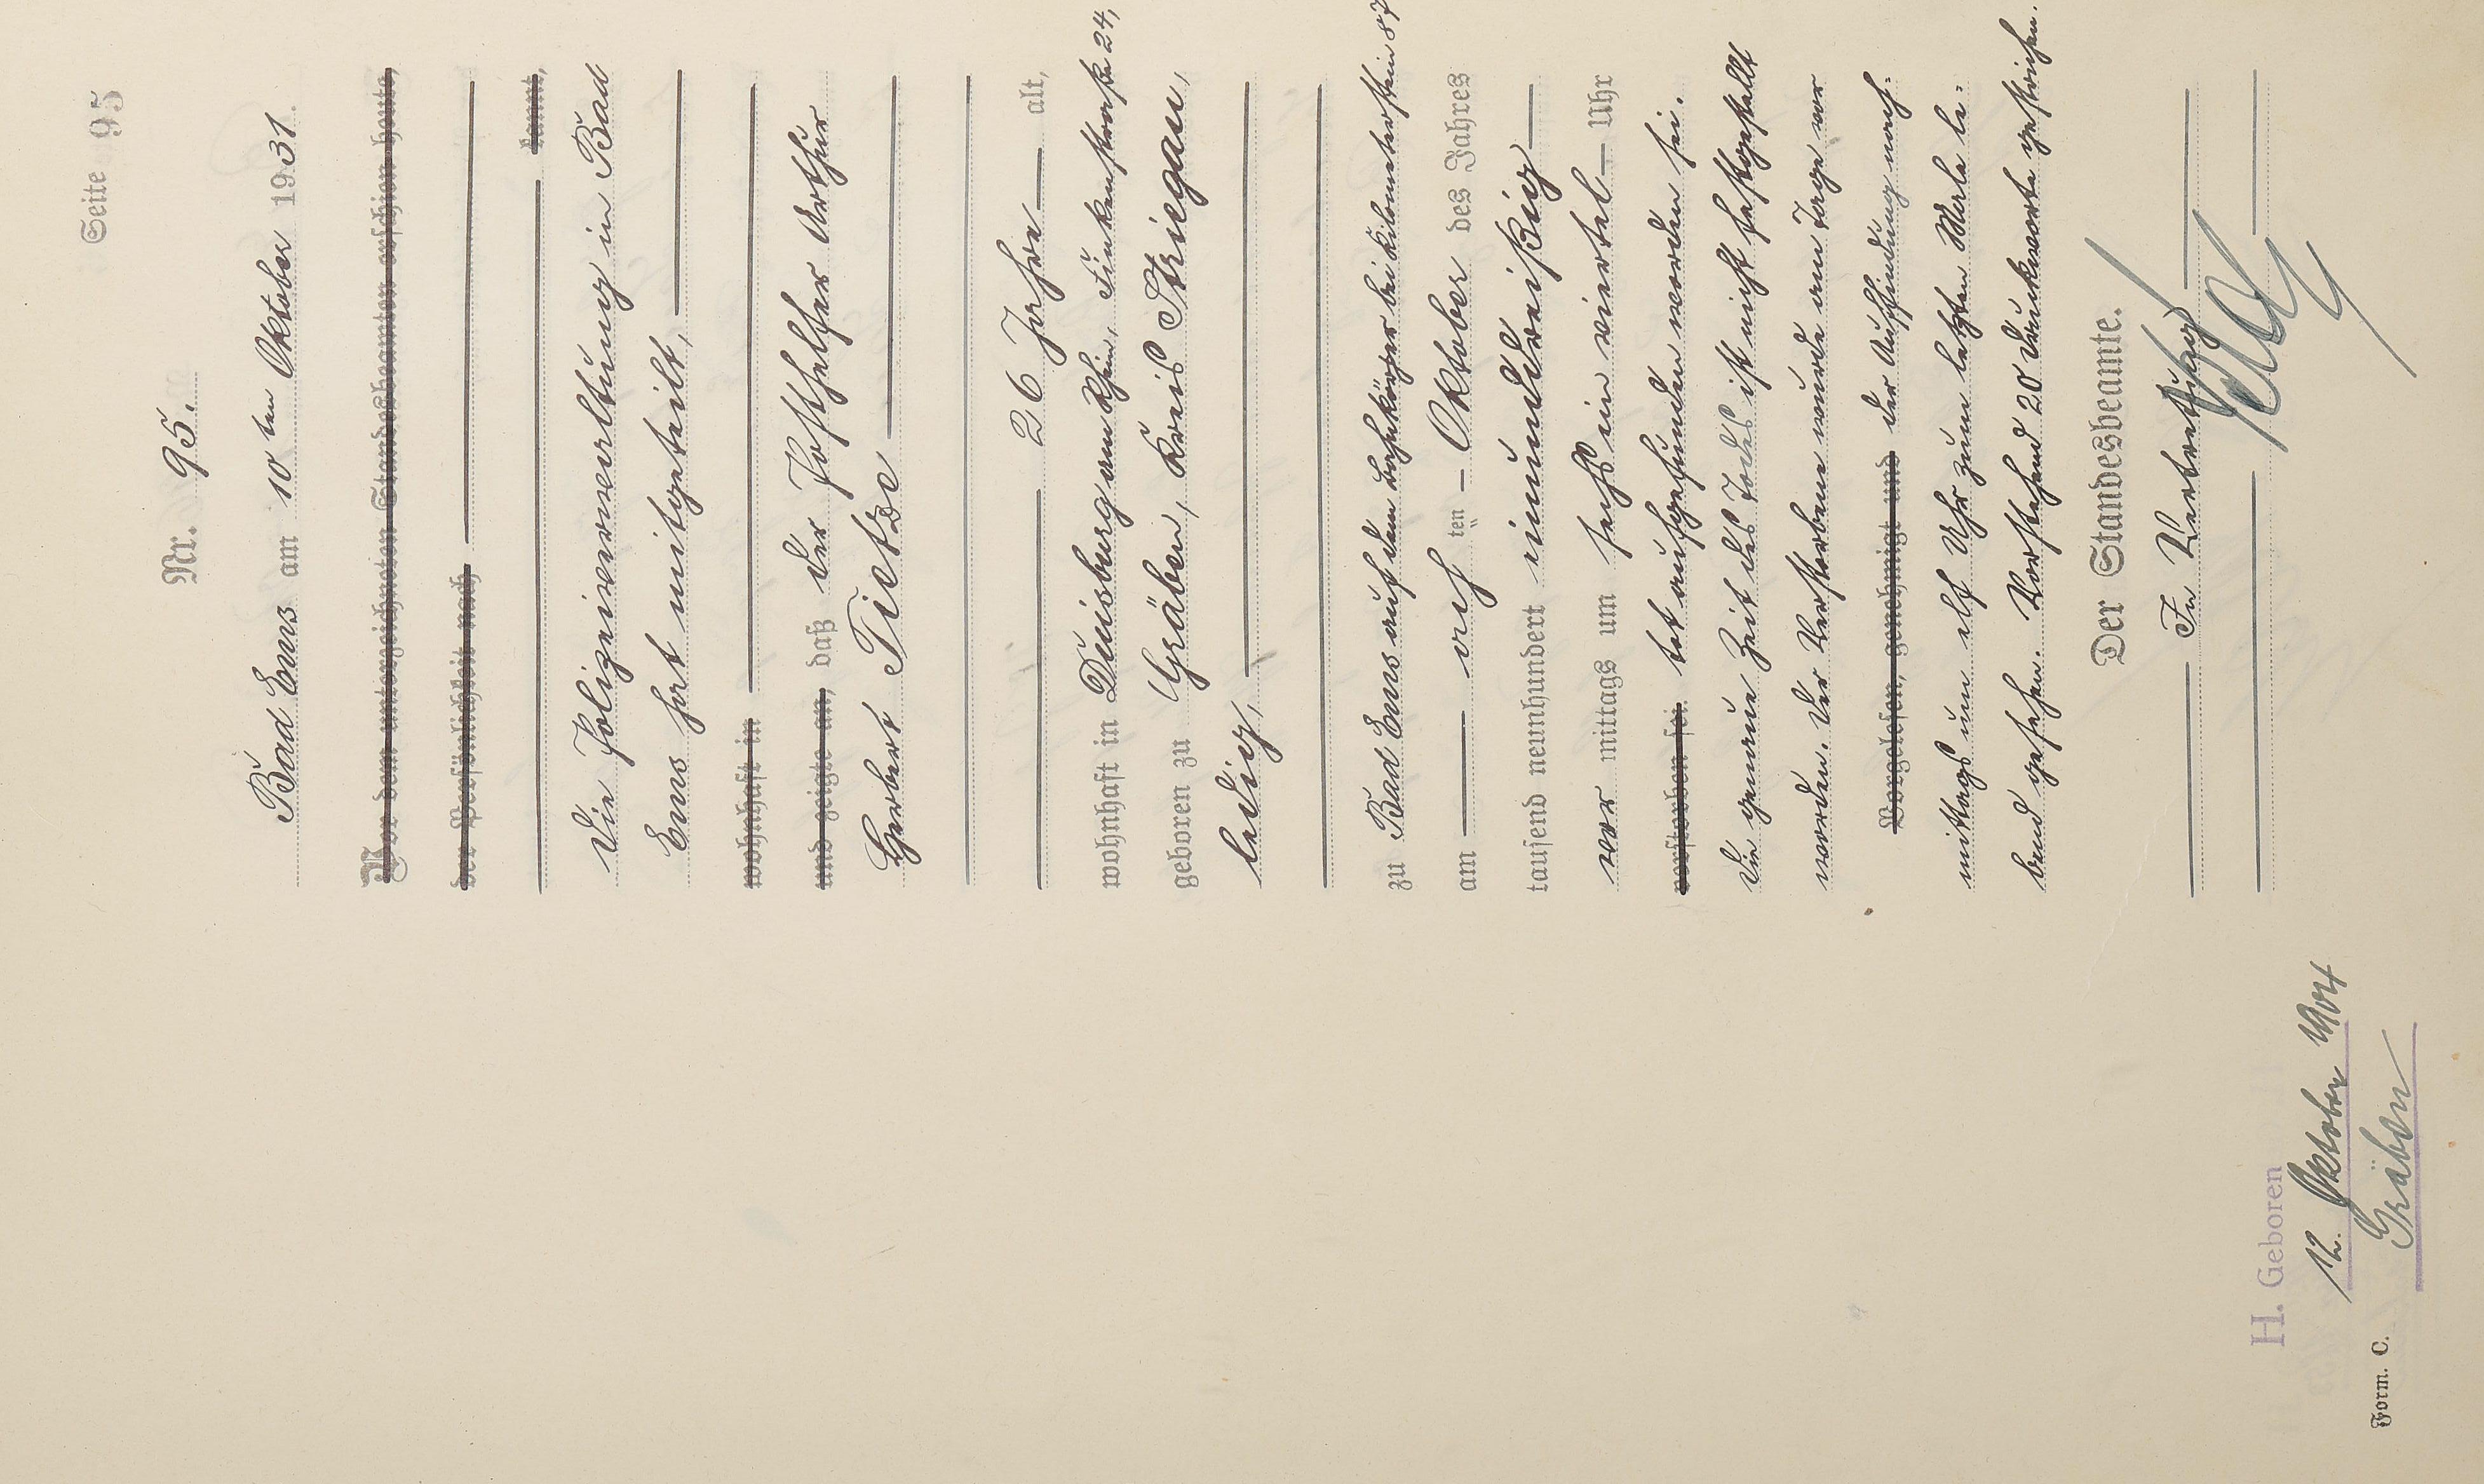 Seite 95
Nr. 95.
Bad Ems am 10ten Oktober 1931.
Vor dem unterzeichneten Standesbeamten erschien heute,
der Persönlichkeit nach
kannt,
Die Polizeiverwaltung in Bad
Ems hat mitgeteilt,
wohnhaft in
und zeigte an, daß der Posthelfer Arthur
Herbert Tietze
26 Jahre alt,
wohnhaft in Duisburg am Rhein, Finkenstraße 24,
geboren zu Gräben, Kreis Striegau,
ledig,
zu Bad Ems auf dem Bahnkörper bei Kilometerstein 87
am acht ten Oktober des Jahres
tausend neunhundert einunddreißig
vor mittags um sechs ein viertel Uhr
verstorben sei. tot aufgefunden worden sei.
Die genaue Zeit des Todes ist nicht festgestellt
worden. Der Verstorbene wurde am Tage vor
Vorgelesen, genehmigt und der Auffindung nach-
mittags um elf Uhr zum letzten Male le-
bend gesehen. Vorstehend 20 Druckworte gestrichen.
Der Standesbeamte.
In Vertretung
H. Geboren
12. Oktober 1904
Gräben
Form. C.